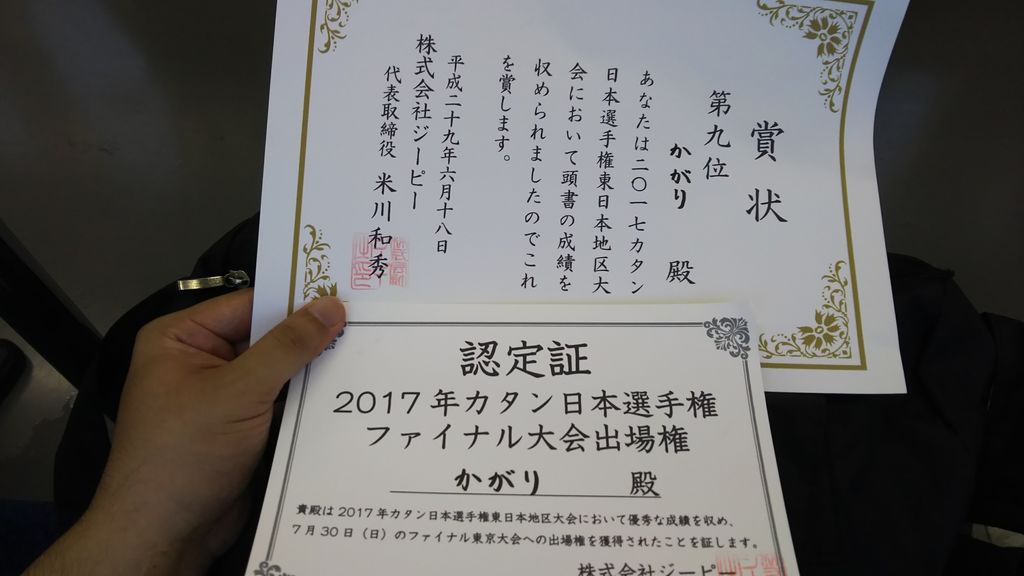 賞状
第九位
かがり 殿
あなたは二〇一七カタン
日本選手権東日本地区大
会において頭書の成績を
収められましたのでこれ
を賞します。
平成二十九年六月十八日
株式会社ジーピー
代表取締役 米川和秀
認定証
2017年カタン日本選手権
ファイナル大会出場権
かがり 殿
貴殿は2017年カタン日本選手権東日本地区大会において優秀な成績を収め、
7月30日（日）のファイナル東京大会への出場権を獲得されたことを証します。
株式会社ジーピー